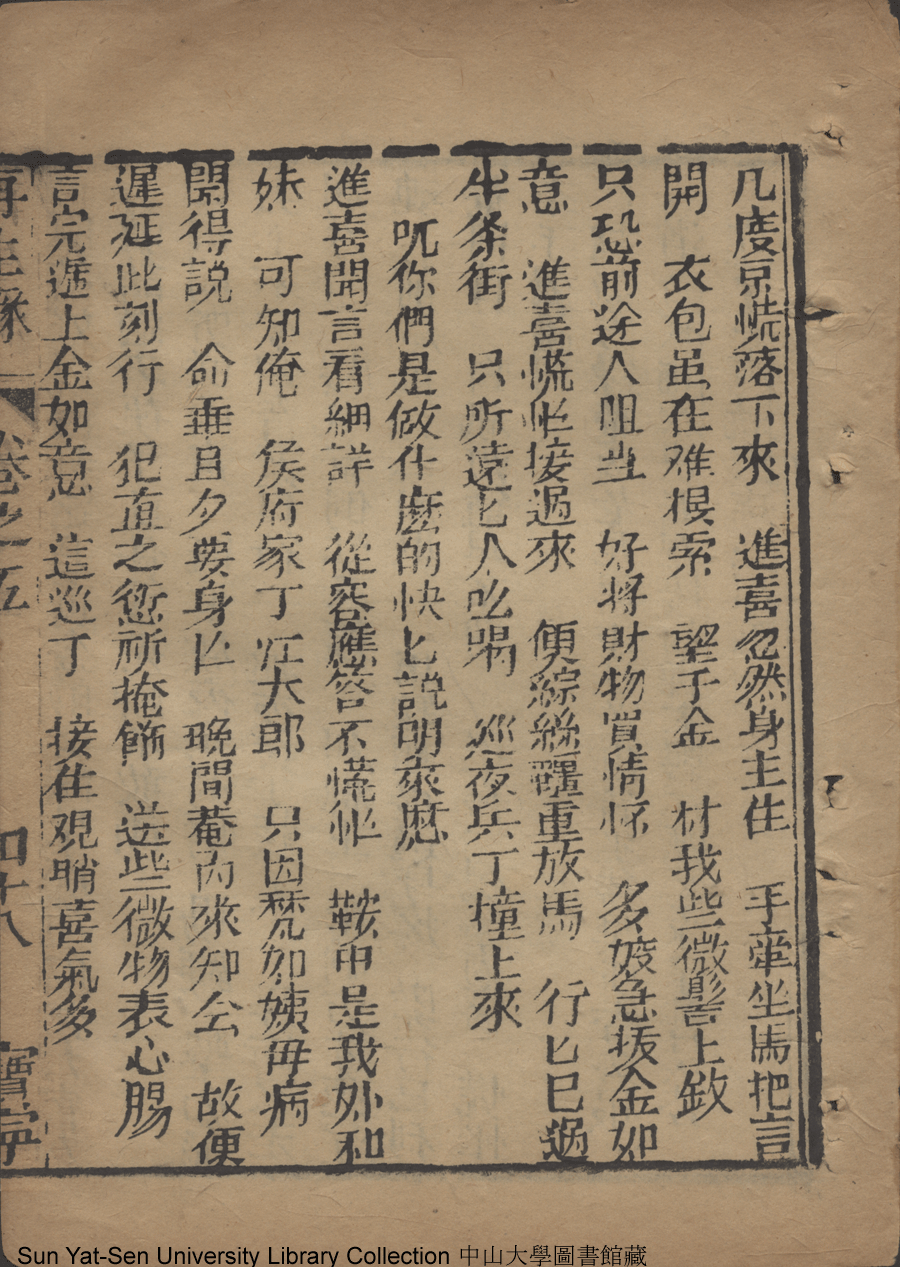 几度京慌落下來　進喜忽然身主住　手牽坐馬把言
開　衣包虽在难根索　望千金　材我些微髻上釵
只恐前途人咀当　好将財物買情怀　多嫂急拔金如
意　進喜慌忙接過來　便綜絲韁重放馬　行匕已過
半条街　只所遠匕人吆喝　巡夜兵丁撞上來
吭你們是做什麽的快匕説明來麽
進喜聞言看細詳　從容應答不慌忙　鞍中是我外和
妹　可知俺　侯府家丁江大郎　只因梵如姨毋病
閙得説　命垂旦夕要身亡　晩間菴内來知会　故便
遲延此刻行　犯直之愆祈掩飾　送些微物表心腸
言完遞上金如意　這巡丁　接住观睄喜氣多
再生緣　卷之五　四十八　寶寧
Sun Yat-Sen University Library Collection 中山大學圖書館藏